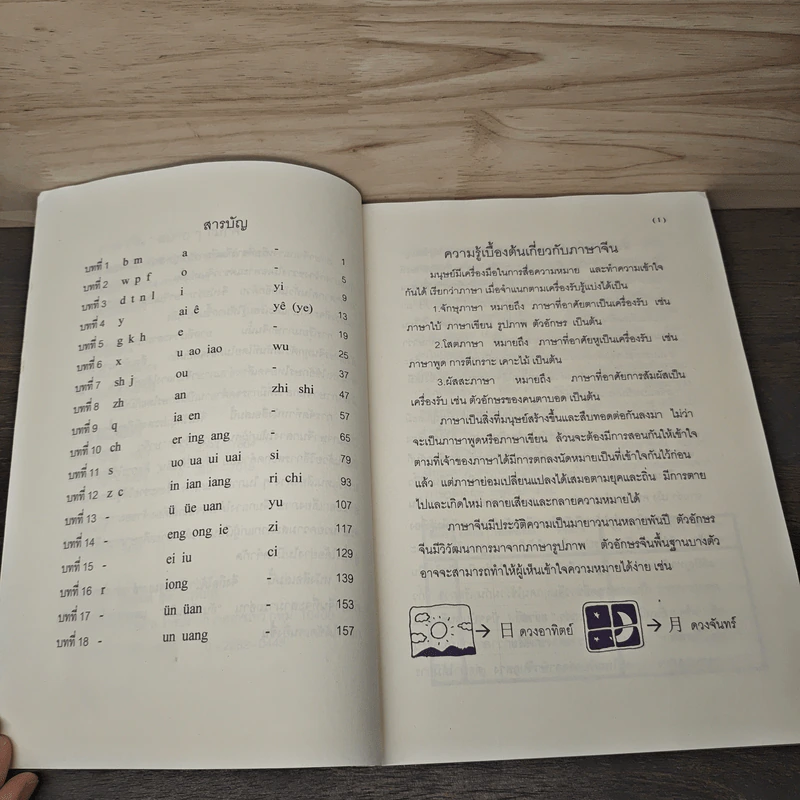 สารบัญ
บทที่ 1 b m a - 1
บทที่ 2 w p f o - 5
บทที่ 3 d t n l i yi 9
บทที่ 4 y ai ê yê (ye) 13
บทที่ 5 g k h e - 19
บทที่ 6 x u ao iao wu 25
บทที่ 7 sh j ou - 37
บทที่ 8 zh an zhi shi 47
บทที่ 9 q ia en - 57
บทที่ 10 ch er ing ang - 65
บทที่ 11 s uo ua ui uai si 79
บทที่ 12 z c in ian iang ri chi 93
บทที่ 13 - ü üe uan yu 107
บทที่ 14 - eng ong ie zi 117
บทที่ 15 - ei iu ci 129
บทที่ 16 r iong - 139
บทที่ 17 - ün üan - 153
บทที่ 18 - un uang - 157
(1)
ความรู้เบื้องต้นเกี่ยวกับภาษาจีน
มนุษย์มีเครื่องมือในการสื่อความหมาย และทำความเข้าใจ
กันได้ เรียกว่าภาษา เมื่อจำแนกตามเครื่องรับรู้แบ่งได้เป็น
1.จักษุภาษา หมายถึง ภาษาที่อาศัยตาเป็นเครื่องรับ เช่น
ภาษาใบ้ ภาษาเขียน รูปภาพ ตัวอักษร เป็นต้น
2.โสตภาษา หมายถึง ภาษาที่อาศัยหูเป็นเครื่องรับ เช่น
ภาษาพูด การตีเกราะ เคาะไม้ เป็นต้น
3.ผัสสะภาษา หมายถึง ภาษาที่อาศัยการสัมผัสเป็น
เครื่องรับ เช่น ตัวอักษรของคนตาบอด เป็นต้น
ภาษาเป็นสิ่งที่มนุษย์สร้างขึ้นและสืบทอดต่อกันลงมา ไม่ว่า
จะเป็นภาษาพูดหรือภาษาเขียน ล้วนจะต้องมีการสอนกันให้เข้าใจ
ตามที่เจ้าของภาษาได้มีการตกลงนัดหมายเป็นที่เข้าใจกันไว้ก่อน
แล้ว แต่ภาษาย่อมเปลี่ยนแปลงได้เสมอตามยุคและถิ่น มีการตาย
ไปและเกิดใหม่ กลายเสียงและกลายความหมายได้
ภาษาจีนมีประวัติความเป็นมายาวนานหลายพันปี ตัวอักษร
จีนมีวิวัฒนาการมาจากภาษารูปภาพ ตัวอักษรจีนพื้นฐานบางตัว
อาจจะสามารถทำให้ผู้เห็นเข้าใจความหมายได้ง่าย เช่น
→ 日 ดวงอาทิตย์ → 月 ดวงจันทร์